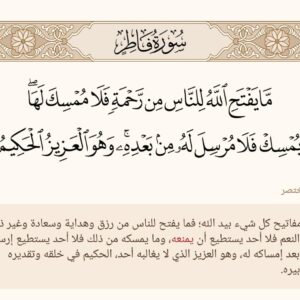 سُورَةُ فَاطِرٍ
مَّا يَفْتَحِ ٱللَّهُ لِلنَّاسِ مِن رَّحْمَةٍ فَلَا مُمْسِكَ لَهَاۖ
يُمْسِكْ فَلَا مُرْسِلَ لَهُۥ مِنۢ بَعْدِهِۦۚ وَهُوَ ٱلْعَزِيزُ ٱلْحَكِيمُ
مفاتيح كل شيء بيد الله؛ فما يفتح للناس من رزق وهداية وسعادة وغير
النعم فلا أحد يستطيع أن يمنعه، وما يمسكه من ذلك فلا أحد يستطيع
بعد إمساكه له، وهو العزيز الذي لا يغالبه أحد، الحكيم في خلقه وتقديره